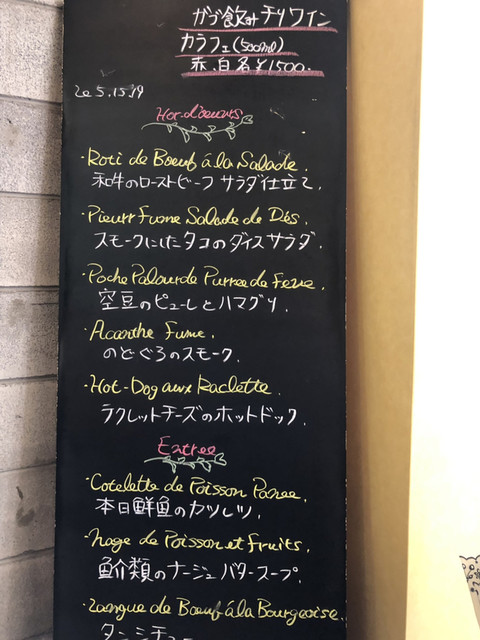 ガブ飲みチリワイン
カラフェ(500ml)
赤、白各¥1500.
Le 5.15.19
Hor-d'oeuvrs
・Roti de Boeuf á la Salade.
和牛のローストビーフ サラダ仕立て.
・Pieurr Fume Salade de Dés.
スモークにしたタコのダイスサラダ.
・Poche Palourde Purree de Feve.
空豆のピューレとハマグリ.
・Acanthe Fume.
のどぐろのスモーク.
・Hot-Dog aux Raclette.
ラクレットチーズのホットドック.
Entree
・Cotelette de Poisson Panee.
本日鮮魚のカツレツ.
・Nage de Poisson et Fruits.
魚介類のナージュ バタースープ.
・Langue de Boeuf á la Bourgeoise.
タンシチュー